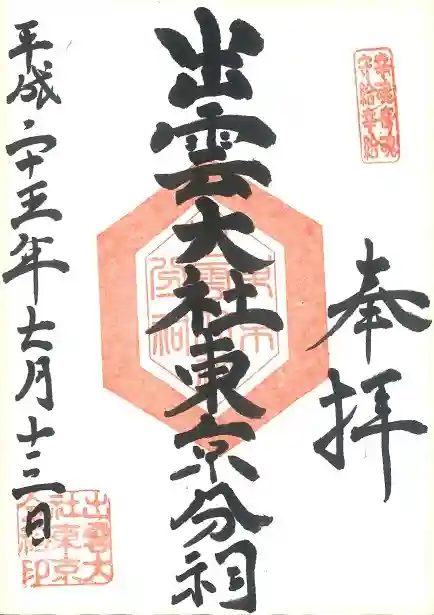 奉拝
幸魂奇魂
守給幸給
出雲大社東京分祠
平成二十五年七月十三日
出雲大
社東京
分祠印